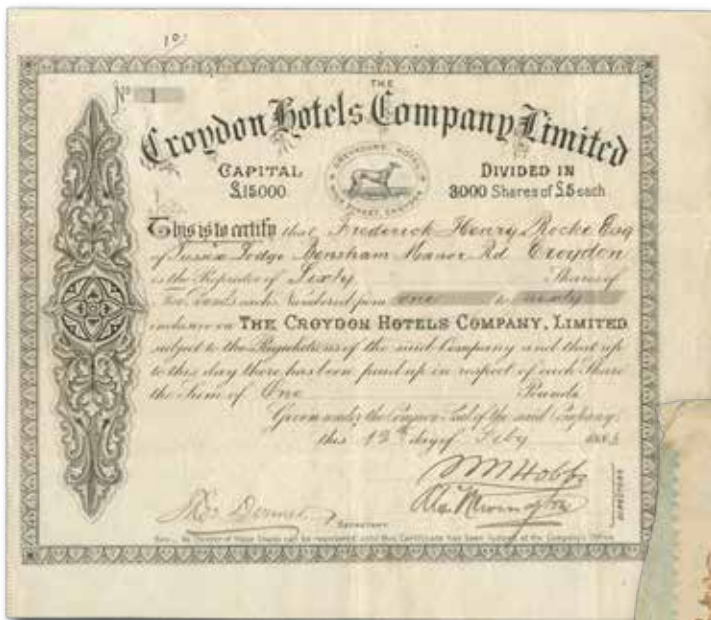 10/
No 1
THE
Croydon Hotels Company Limited
CAPITAL
£15000
GREYHOUND HOTEL
HIGH STREET, CROYDON
DIVIDED IN
3000 Shares of £5 each
This is to certify that Frederick Henry Rocke Esq
of Sussex Lodge Bensham Manor Rd Croydon
is the Proprietor of Sixty Shares of
Five Pounds each Numbered from one to sixty
inclusive in THE CROYDON HOTELS COMPANY, LIMITED
subject to the Regulations of the said Company and that up
to this day there has been paid up in respect of each Share
the Sum of One Pounds
Given under the Common Seal of the said Company
this 13th day of Feby
W M Hobbs
DIRECTORS
SECRETARY
Note. No Transfer of these Shares can be registered until this Certificate has been lodged at the Company's Office